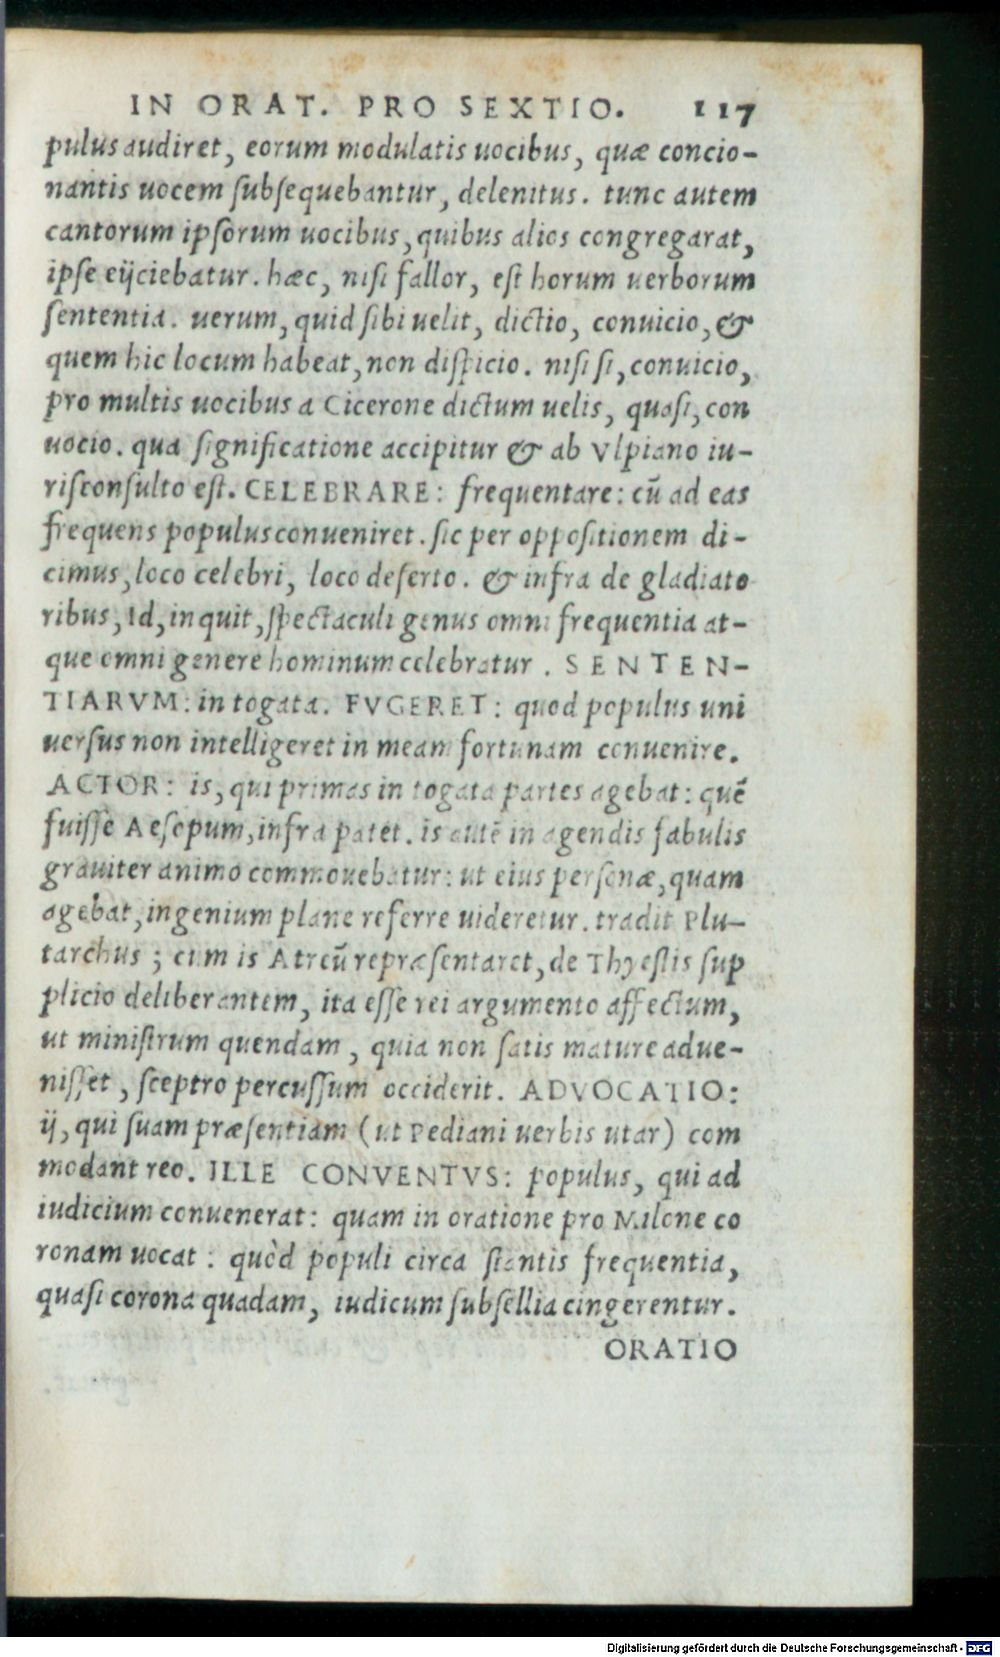 IN ORAT. PRO SEXTIO. 117
pulus audiret, eorum modulatis uocibus, quæ concio-
nantis uocem subsequebantur, delenitus. tunc autem
cantorum ipsorum uocibus, quibus alios congregarat,
ipse eijciebatur. hæc, nisi fallor, est horum uerborum
sententia. uerum, quid sibi uelit, dictio, conuicio, &
quem hic locum habeat, non dispicio. nisi si, conuicio,
pro multis uocibus a Cicerone dictum uelis, quasi, con
uocio. qua significatione accipitur & ab Vlpiano iu-
risconsulto est. CELEBRARE: frequentare: cū ad eas
frequens populus conueniret. sic per oppositionem di-
cimus, loco celebri, loco deserto. & infra de gladiato
ribus, Id, inquit, spectaculi genus omni frequentia at-
que omni genere hominum celebratur. SENTEN-
TIARVM: in togata. FVGERET: quod populus uni
uersus non intelligeret in meam fortunam conuenire.
ACTOR: is, qui primas in togata partes agebat: quē
fuisse Aesopum, infra patet. is autē in agendis fabulis
grauiter animo commouebatur: ut eius personæ, quam
agebat, ingenium plane referre uideretur. tradit Plu-
tarchus; cum is Atreū repræsentaret, de Thyestis sup
plicio deliberantem, ita esse rei argumento affectum,
ut ministrum quendam, quia non satis mature adue-
nisset, sceptro percussum occiderit. ADVOCATIO:
ij, qui suam præsentiam (ut Pediani uerbis utar) com
modant reo. ILLE CONVENTVS: populus, qui ad
iudicium conuenerat: quam in oratione pro Milone co
ronam uocat: quòd populi circa stantis frequentia,
quasi corona quadam, iudicum subsellia cingerentur.
ORATIO
Digitalisierung gefördert durch die Deutsche Forschungsgemeinschaft - DFG